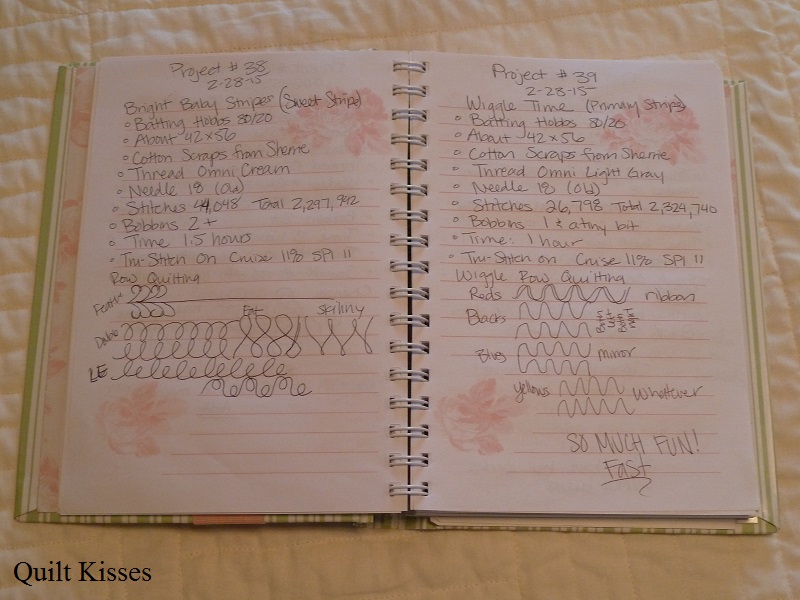 Project # 38
2-28-15
Bright Baby Stripes (Sweet Strips)
Batting Hobbs 80/20
About 42x56
Cotton Scraps from Sherrie
Thread Omni Cream
Needle 18 (Old)
Stitches 44,048 Total 2,297,942
Bobbins 2+
Time 1.5 hours
Tru-Stitch on Cruise 11% SPI 11
Row Quilting
Feather
Fat Skinny
Double
LE
Project # 39
2-28-15
Wiggle Time (Primary Strips)
Batting Hobbs 80/20
About 42x56
Cotton Scraps from Sherrie
Thread Omni Light Gray
Needle 18 (Old)
Stitches 26,798 Total 2,324,740
Bobbins 1 & a tiny bit
Time: 1 hour
Tru-Stitch on Cruise 11% SPI 11
Wiggle Row Quilting
Reds ribbon
Blacks
Blues mirror
Yellows Whatever
SO MUCH FUN!
Fast
Quilt Kisses